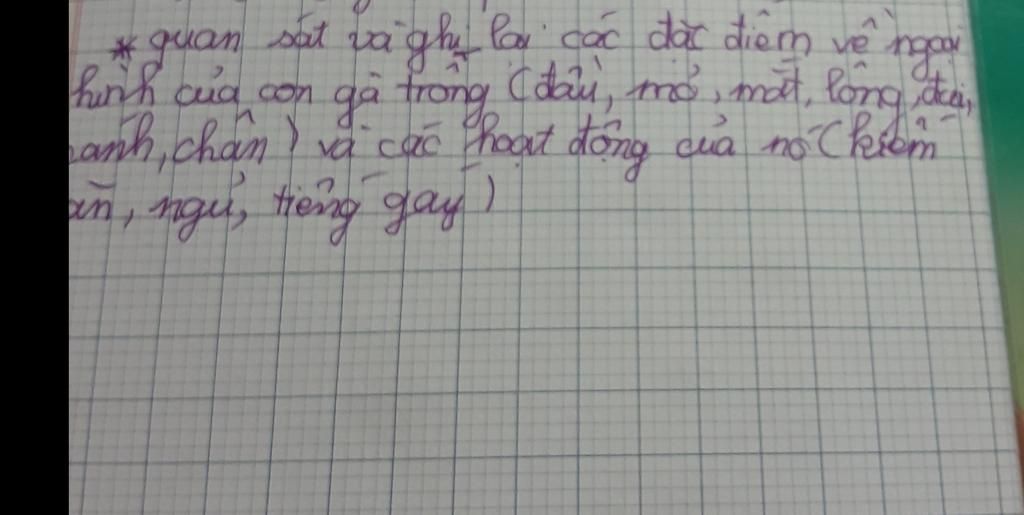 * quan sát và ghi lại các đặc điểm về ngoại
hình của con gà trống (đầu, mỏ, mắt, lông, đuôi,
cánh, chân) và các hoạt động của nó (kiếm
ăn, ngủ, tiếng gáy)